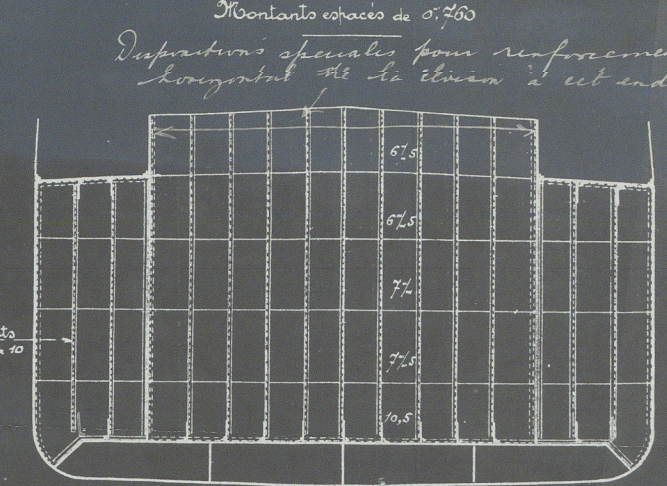 Montants espacés de 0,ᵐ760
Dispositions speciales pour renforceme
horizontal de la cloison à cet end
6%5
6%5
7%
7%5
ts
10
10,5